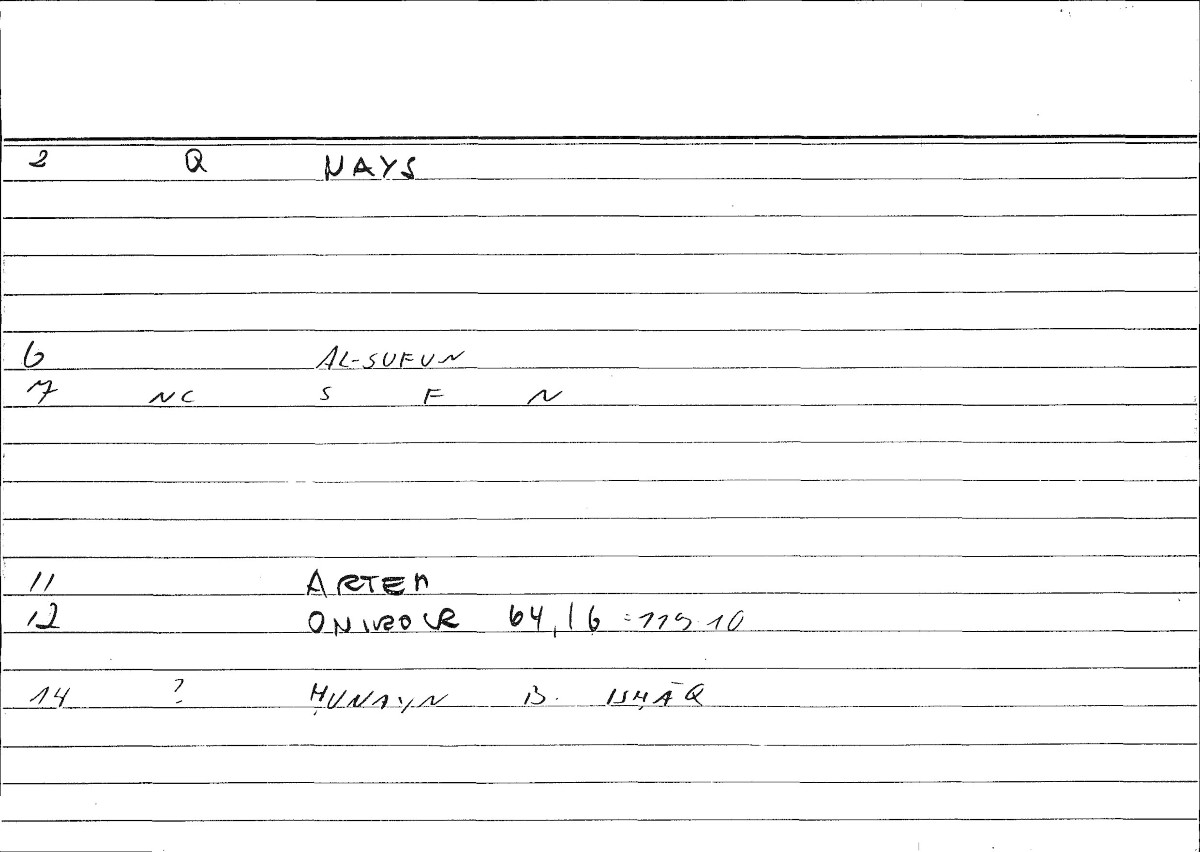 2 Q NAYS
6 AL-SUFUN
7 NC S F N
11 ARTEM
12 ONIROCR 64,16 = 119.10
14 ? ḤUNAYN B. ISḤĀQ